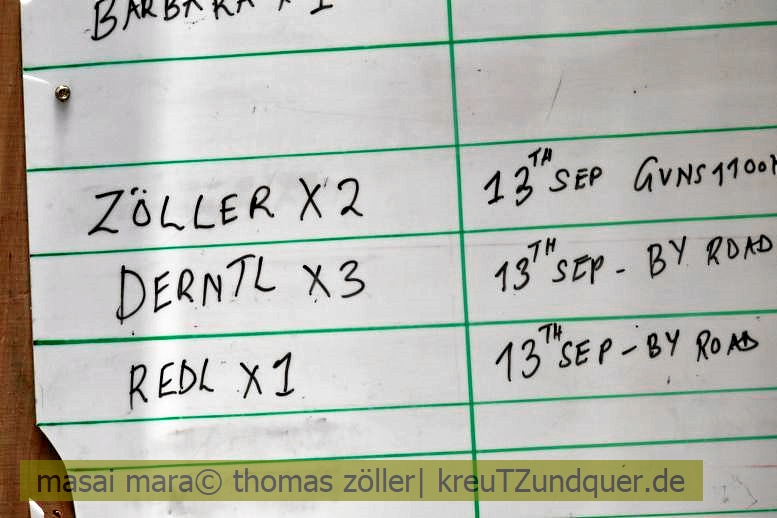 BARBARA X 1
ZÖLLER X 2 13TH SEP GUNS 1100H
DERNTL X 3 13TH SEP - BY ROAD
REDL X 1 13TH SEP - BY ROAD
masai mara© thomas zöller| kreuTZundquer.de